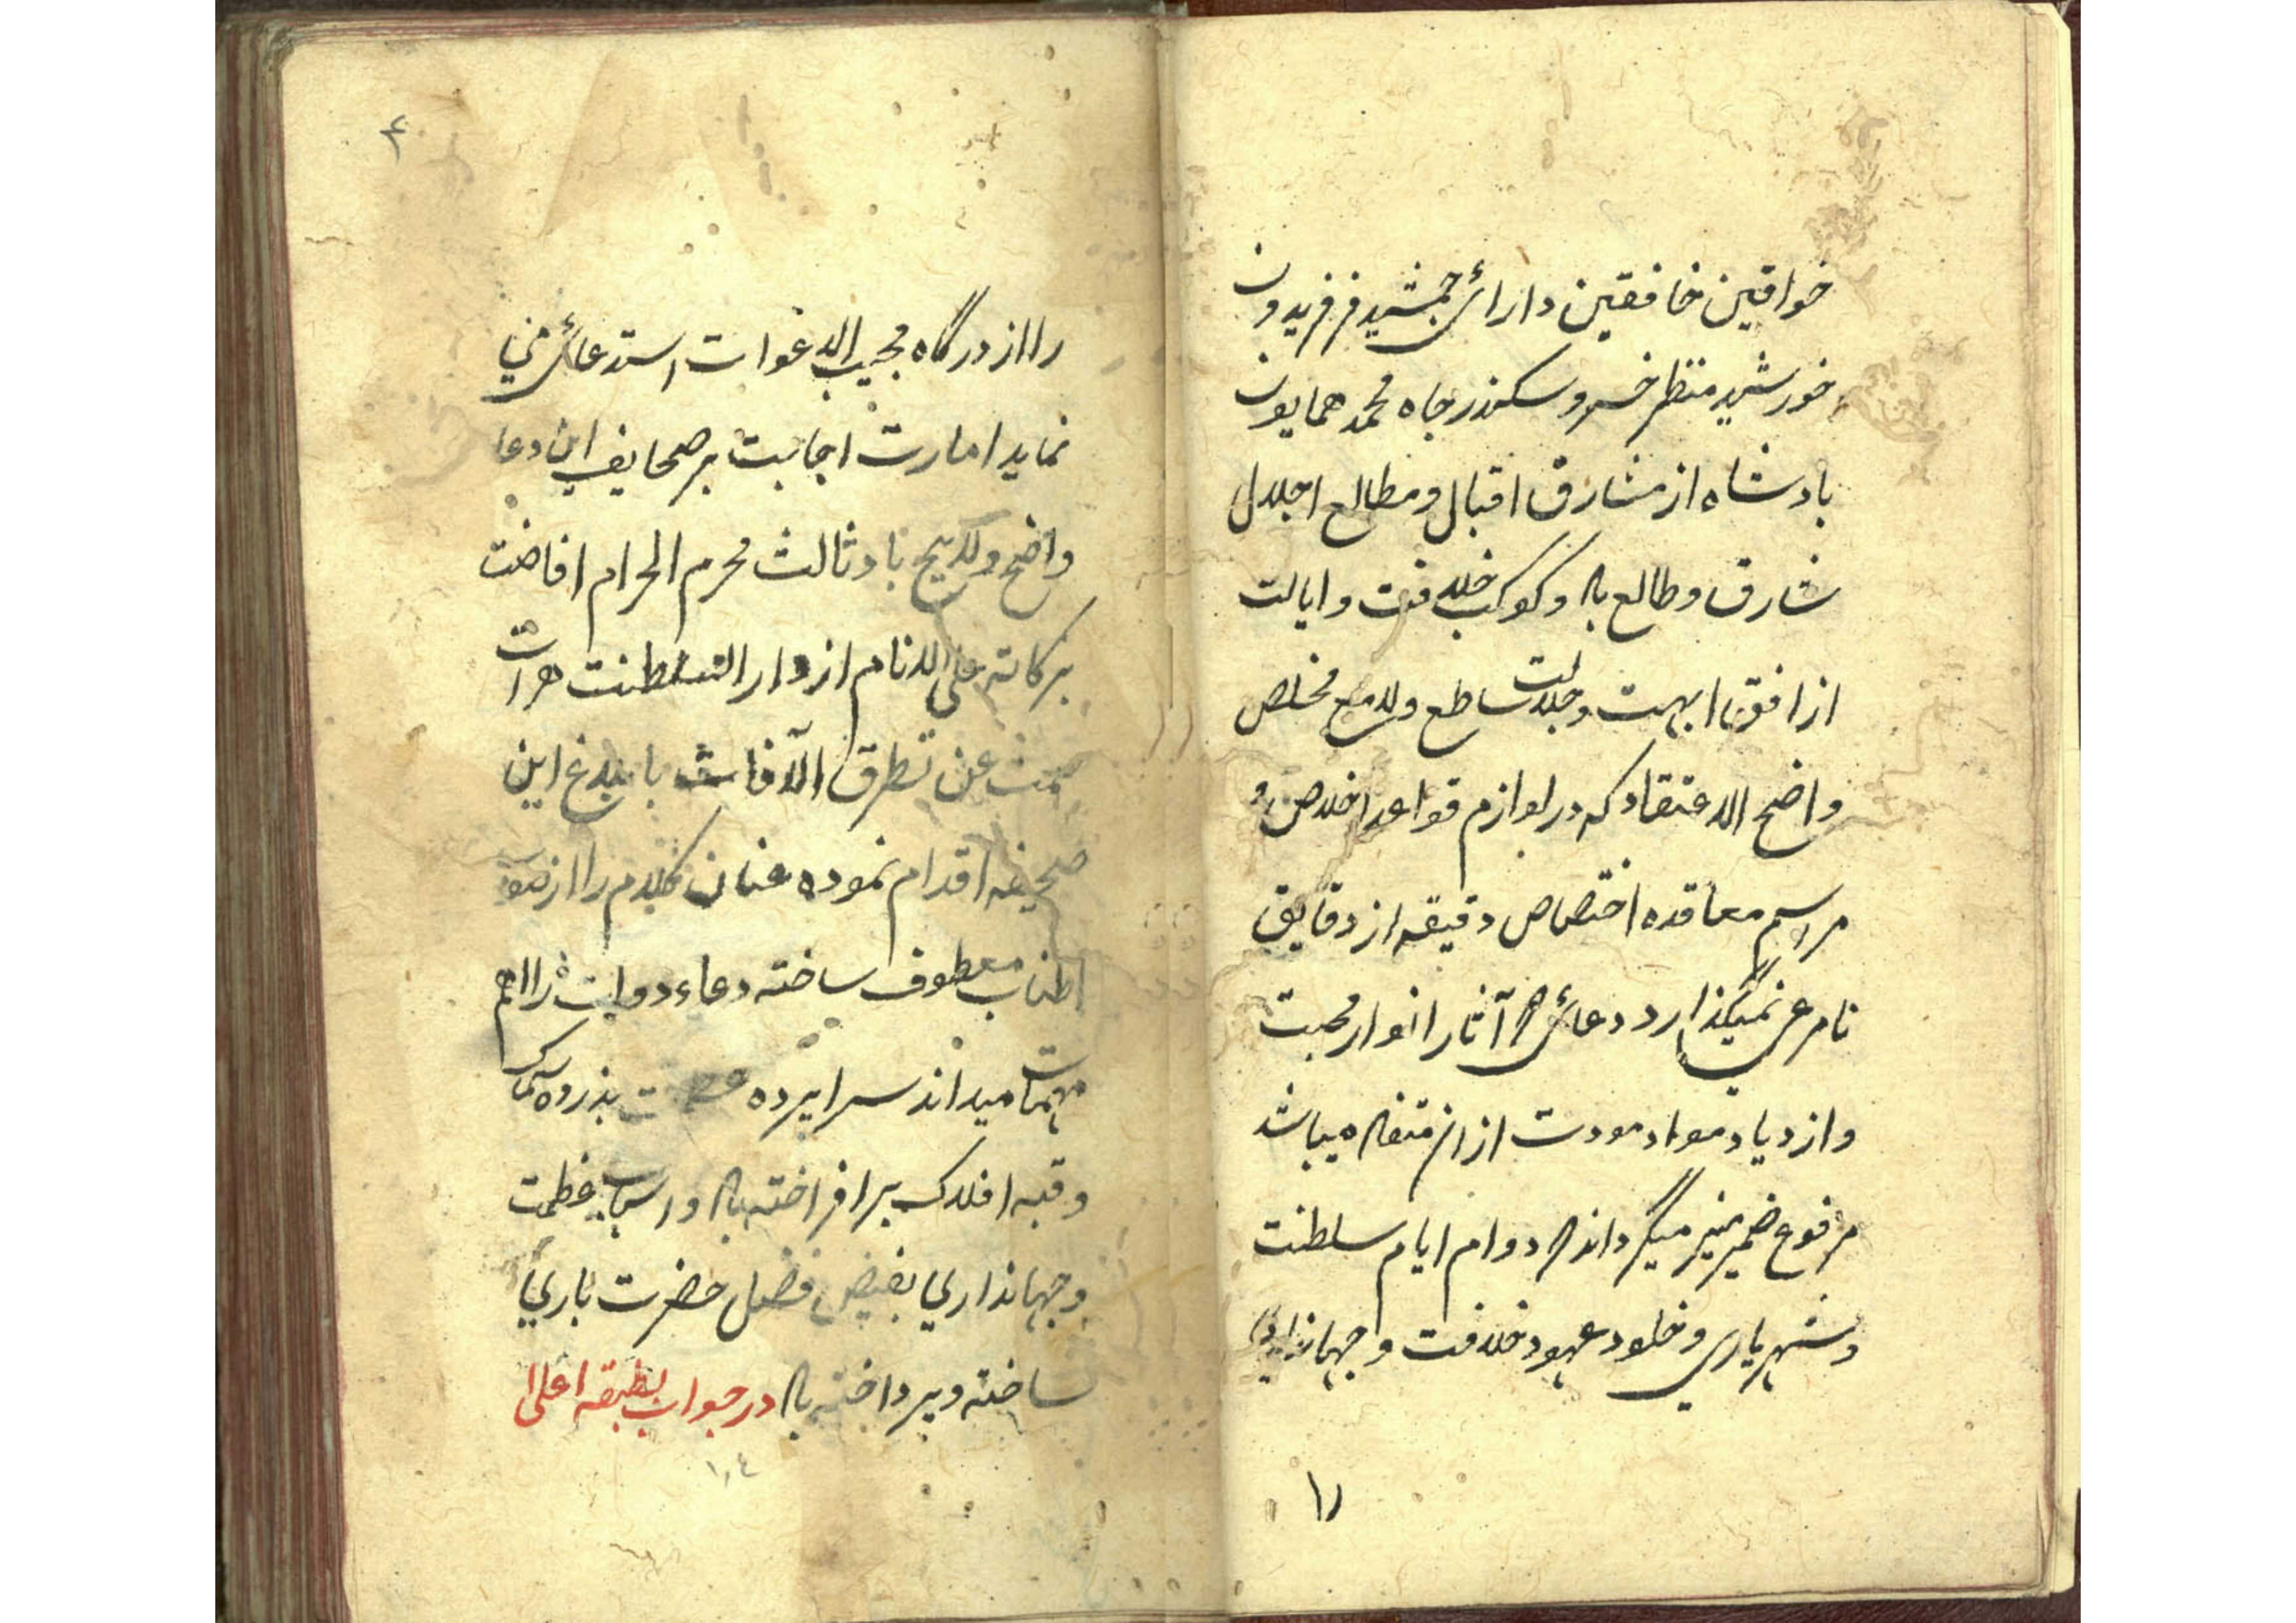 خواقین خافقین دارائ جمشید فر فریدون
خورشید منظر خسرو سکندر جاه محمد همایون
بادشاه از مشارق اقبال و مطالع اجلال
شارق و طالع باد و کوکب خلافت و ایالت
از افق ابهت و جلالت ساطع و لامع مخلص
واضح الاعتقاد که در لوازم قواعد اخلاص و
مراسم معاقده اختصاص دقیقه از دقایق
نامرعی نمیگذارد دعائ که آثار انوار محبت
و ازدیاد مواد مودت ازان متفاد میباشد
مرفوع ضمیر منیر میگرداند که دوام ایام سلطنت
و شهریاری و خلود عهود خلافت و جهانداری
را
۴
را از درگاه مجیب الدعوات استدعائ می
نماید امارت اجابت بر صحایف این دعا
واضح و لایح باد ثالث محرم الحرام افاضت
برکاته علی الانام از دار السلطنت هرات
عن تطرق الآفات بابلاغ این
صحیفه اقدام نموده عنان کلام را از صوب
اطناب معطوف ساخته دعاء دولتش را اهم
مهمات میداند سراپرده بذروه
و قبه افلاک برافراخته باد و اسباب عظمت
و جهانداری بفیض فضل حضرت باری
ساخته و پرداخته باد در جواب بطبقه اعلی